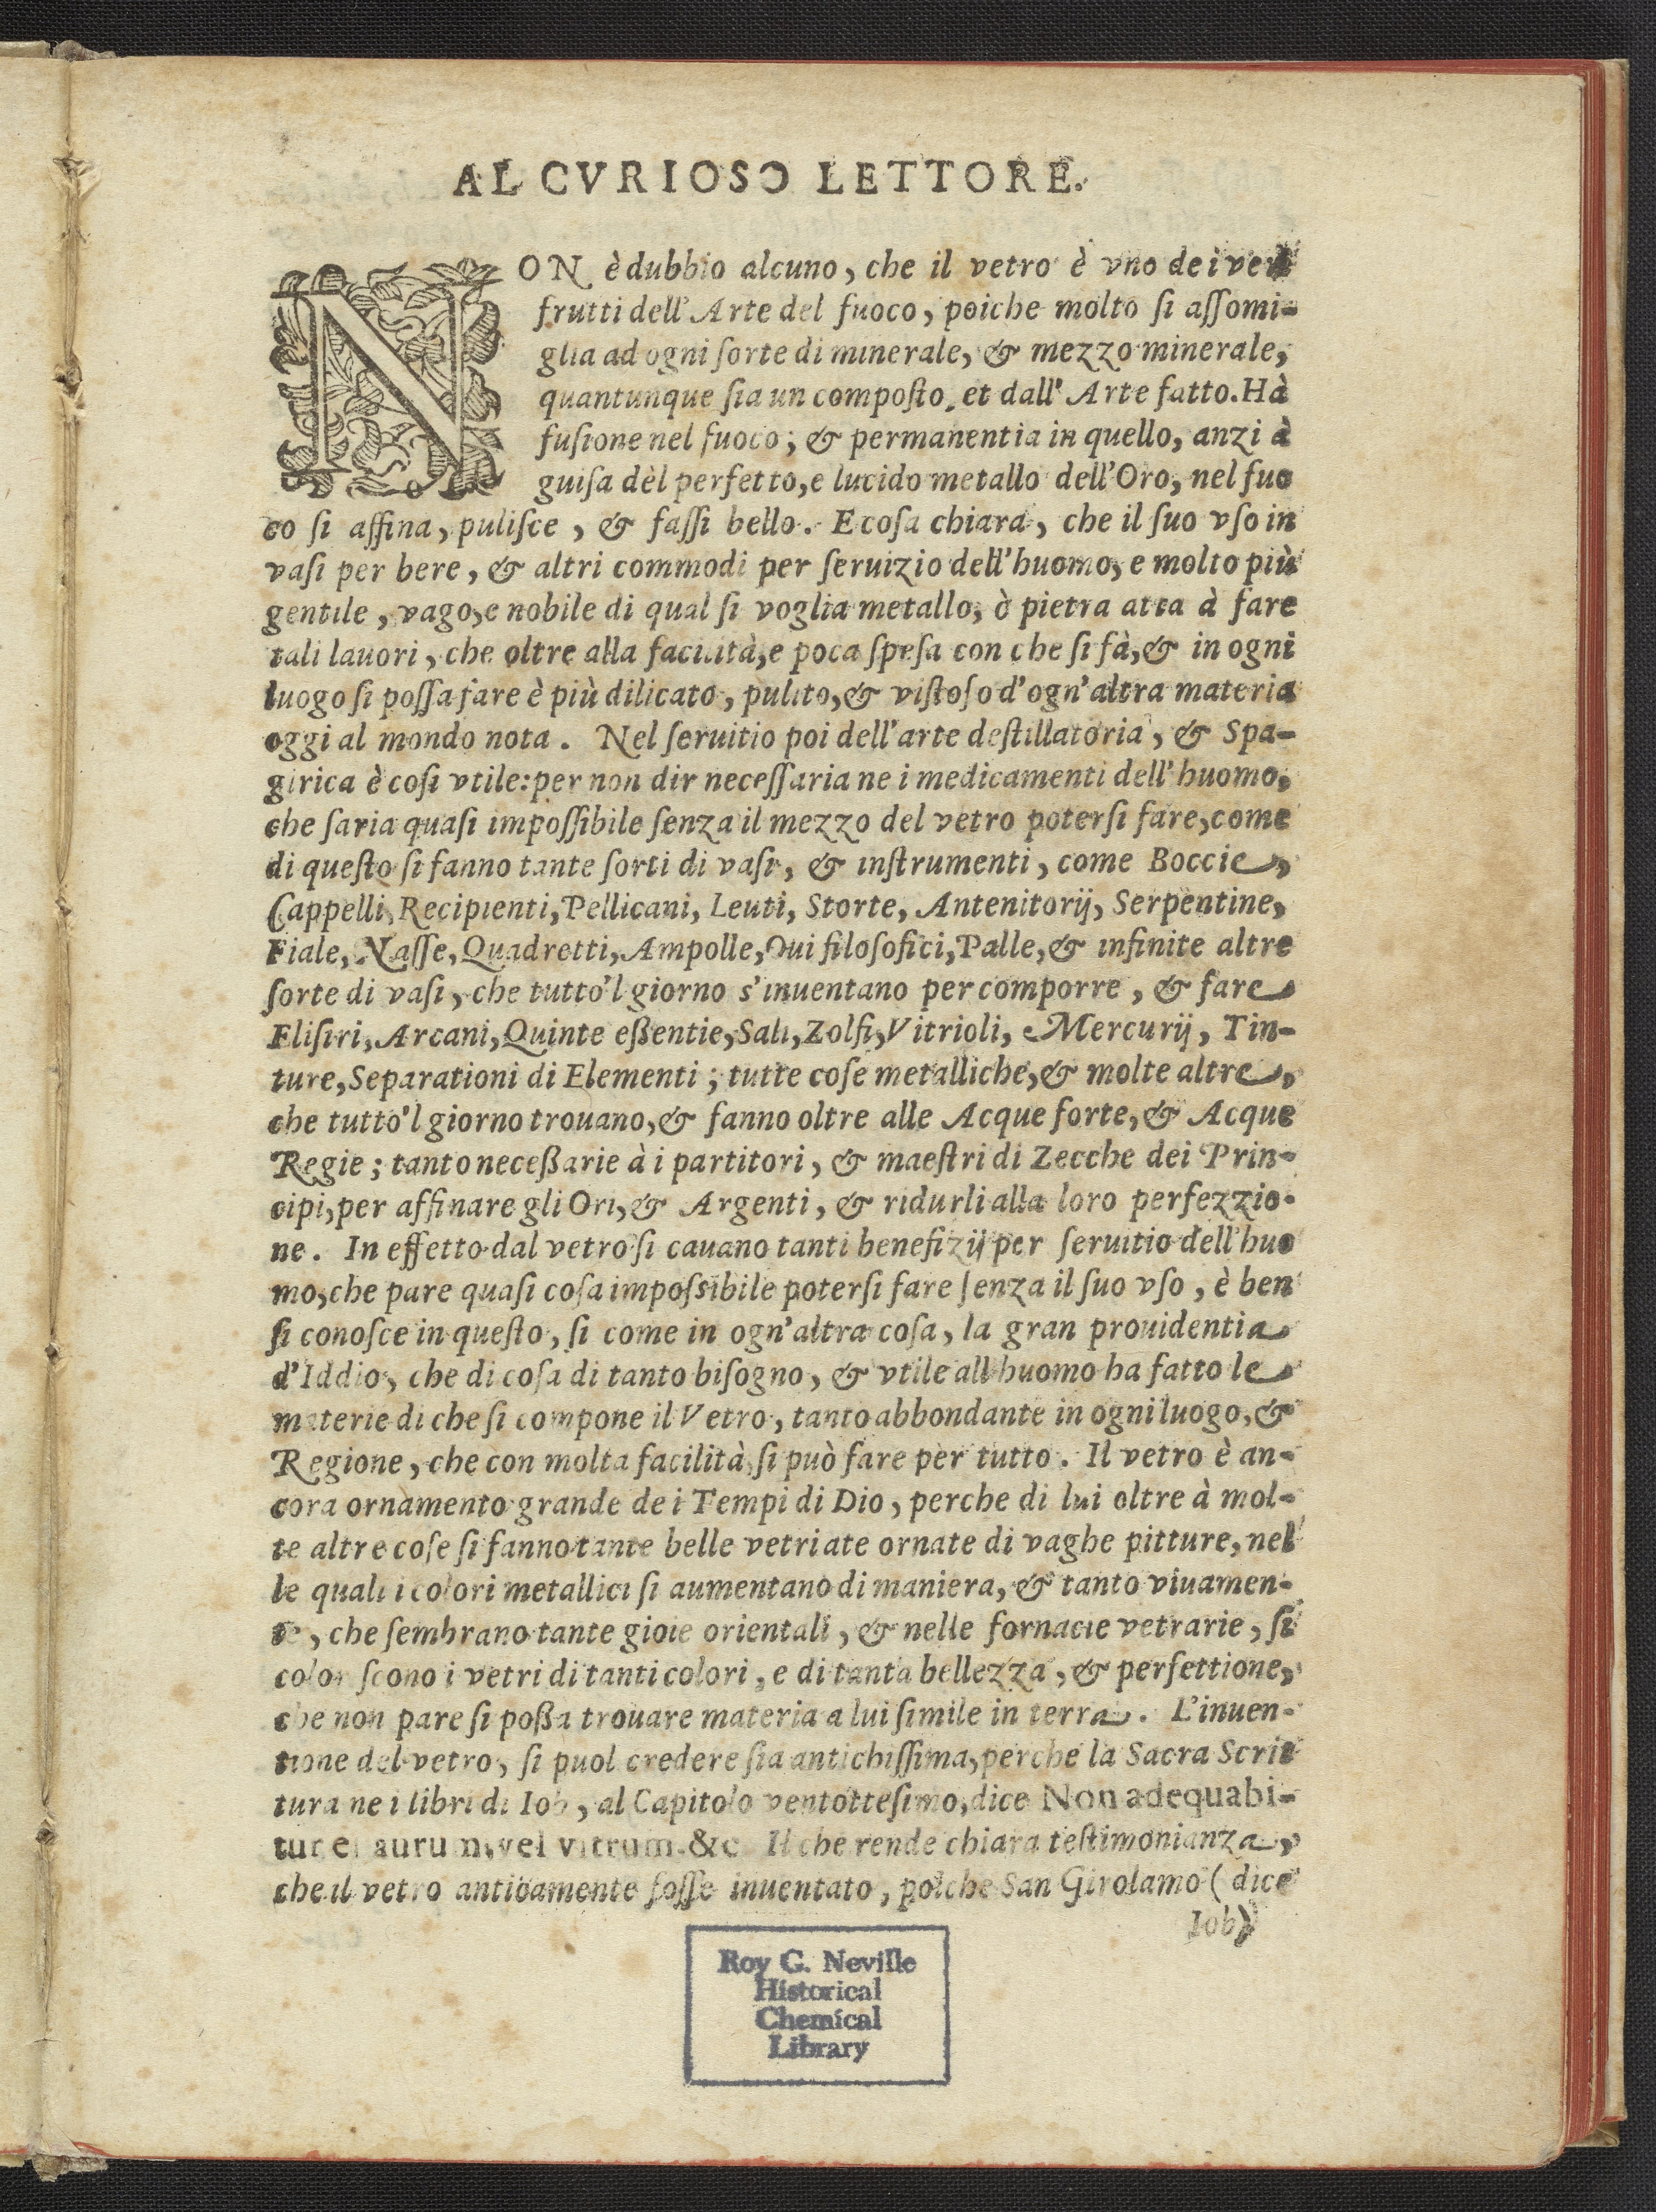 AL CVRIOSO LETTORE.
NON è dubbio alcuno, che il vetro è vno de i veri
frutti dell'Arte del fuoco, poiche molto si assomi-
glia ad ogni sorte di minerale, & mezzo minerale,
quantunque sia un composto, et dall'Arte fatto. Hà
fusione nel fuoco; & permanentia in quello, anzi à
guisa dèl perfetto, e lucido metallo dell'Oro, nel fuo
co si affina, pulisce, & fassi bello. E cosa chiara, che il suo vso in
vasi per bere, & altri commodi per seruizio dell'huomo, e molto più
gentile, vago, e nobile di qual si voglia metallo, ò pietra atta à fare
tali lauori, che oltre alla facilità, e poca spesa con che si fà, & in ogni
luogo si possa fare è più dilicato, pulito, & vistoso d'ogn'altra materia
oggi al mondo nota. Nel seruitio poi dell'arte destillatoria, & Spa-
girica è cosi vtile: per non dir necessaria ne i medicamenti dell'huomo,
che saria quasi impossibile senza il mezzo del vetro potersi fare, come
di questo si fanno tante sorti di vasi, & instrumenti, come Boccie,
Cappelli, Recipienti, Pellicani, Leuti, Storte, Antenitorij, Serpentine,
Fiale, Nasse, Quadretti, Ampolle, Oui filosofici, Palle, & infinite altre
sorte di vasi, che tutto'l giorno s'inuentano per comporre, & fare
Elisiri, Arcani, Quinte eßentie, Sali, Zolfi, Vitrioli, Mercurij, Tin-
ture, Separationi di Elementi; tutte cose metalliche, & molte altre,
che tutto'l giorno trouano, & fanno oltre alle Acque forte, & Acque
Regie; tanto neceßarie à i partitori, & maestri di Zecche dei Prin-
cipi, per affinare gli Ori, & Argenti, & ridurli alla loro perfezzio-
ne. In effetto dal vetro si cauano tanti benefizij per seruitio dell'huo
mo, che pare quasi cosa impossibile potersi fare senza il suo vso, è ben
si conosce in questo, si come in ogn'altra cosa, la gran prouidentia
d'Iddio, che di cosa di tanto bisogno, & vtile all'huomo ha fatto le
materie di che si compone il Vetro, tanto abbondante in ogni luogo, &
Regione, che con molta facilità si può fare per tutto. Il vetro è an-
cora ornamento grande de i Tempi di Dio, perche di lui oltre à mol-
te altre cose si fanno tante belle vetriate ornate di vaghe pitture, nel
le quali i colori metallici si aumentano di maniera, & tanto viuamen-
te, che sembrano tante gioie orientali, & nelle fornacie vetrarie, si
coloriscono i vetri di tanti colori, e di tanta bellezza, & perfettione,
che non pare si poßa trouare materia a lui simile in terra. L'inuen-
tione del vetro, si puol credere sia antichissima, perche la Sacra Scrit
tura ne i libri di Iob, al Capitolo ventottesimo, dice Non adequabi-
tur ei aurum, vel vitrum &c. Il che rende chiara testimonianza,
che il vetro anticamente fosse inuentato, poiche San Girolamo (dice
Iob)
Roy G. Neville
Historical
Chemical
Library